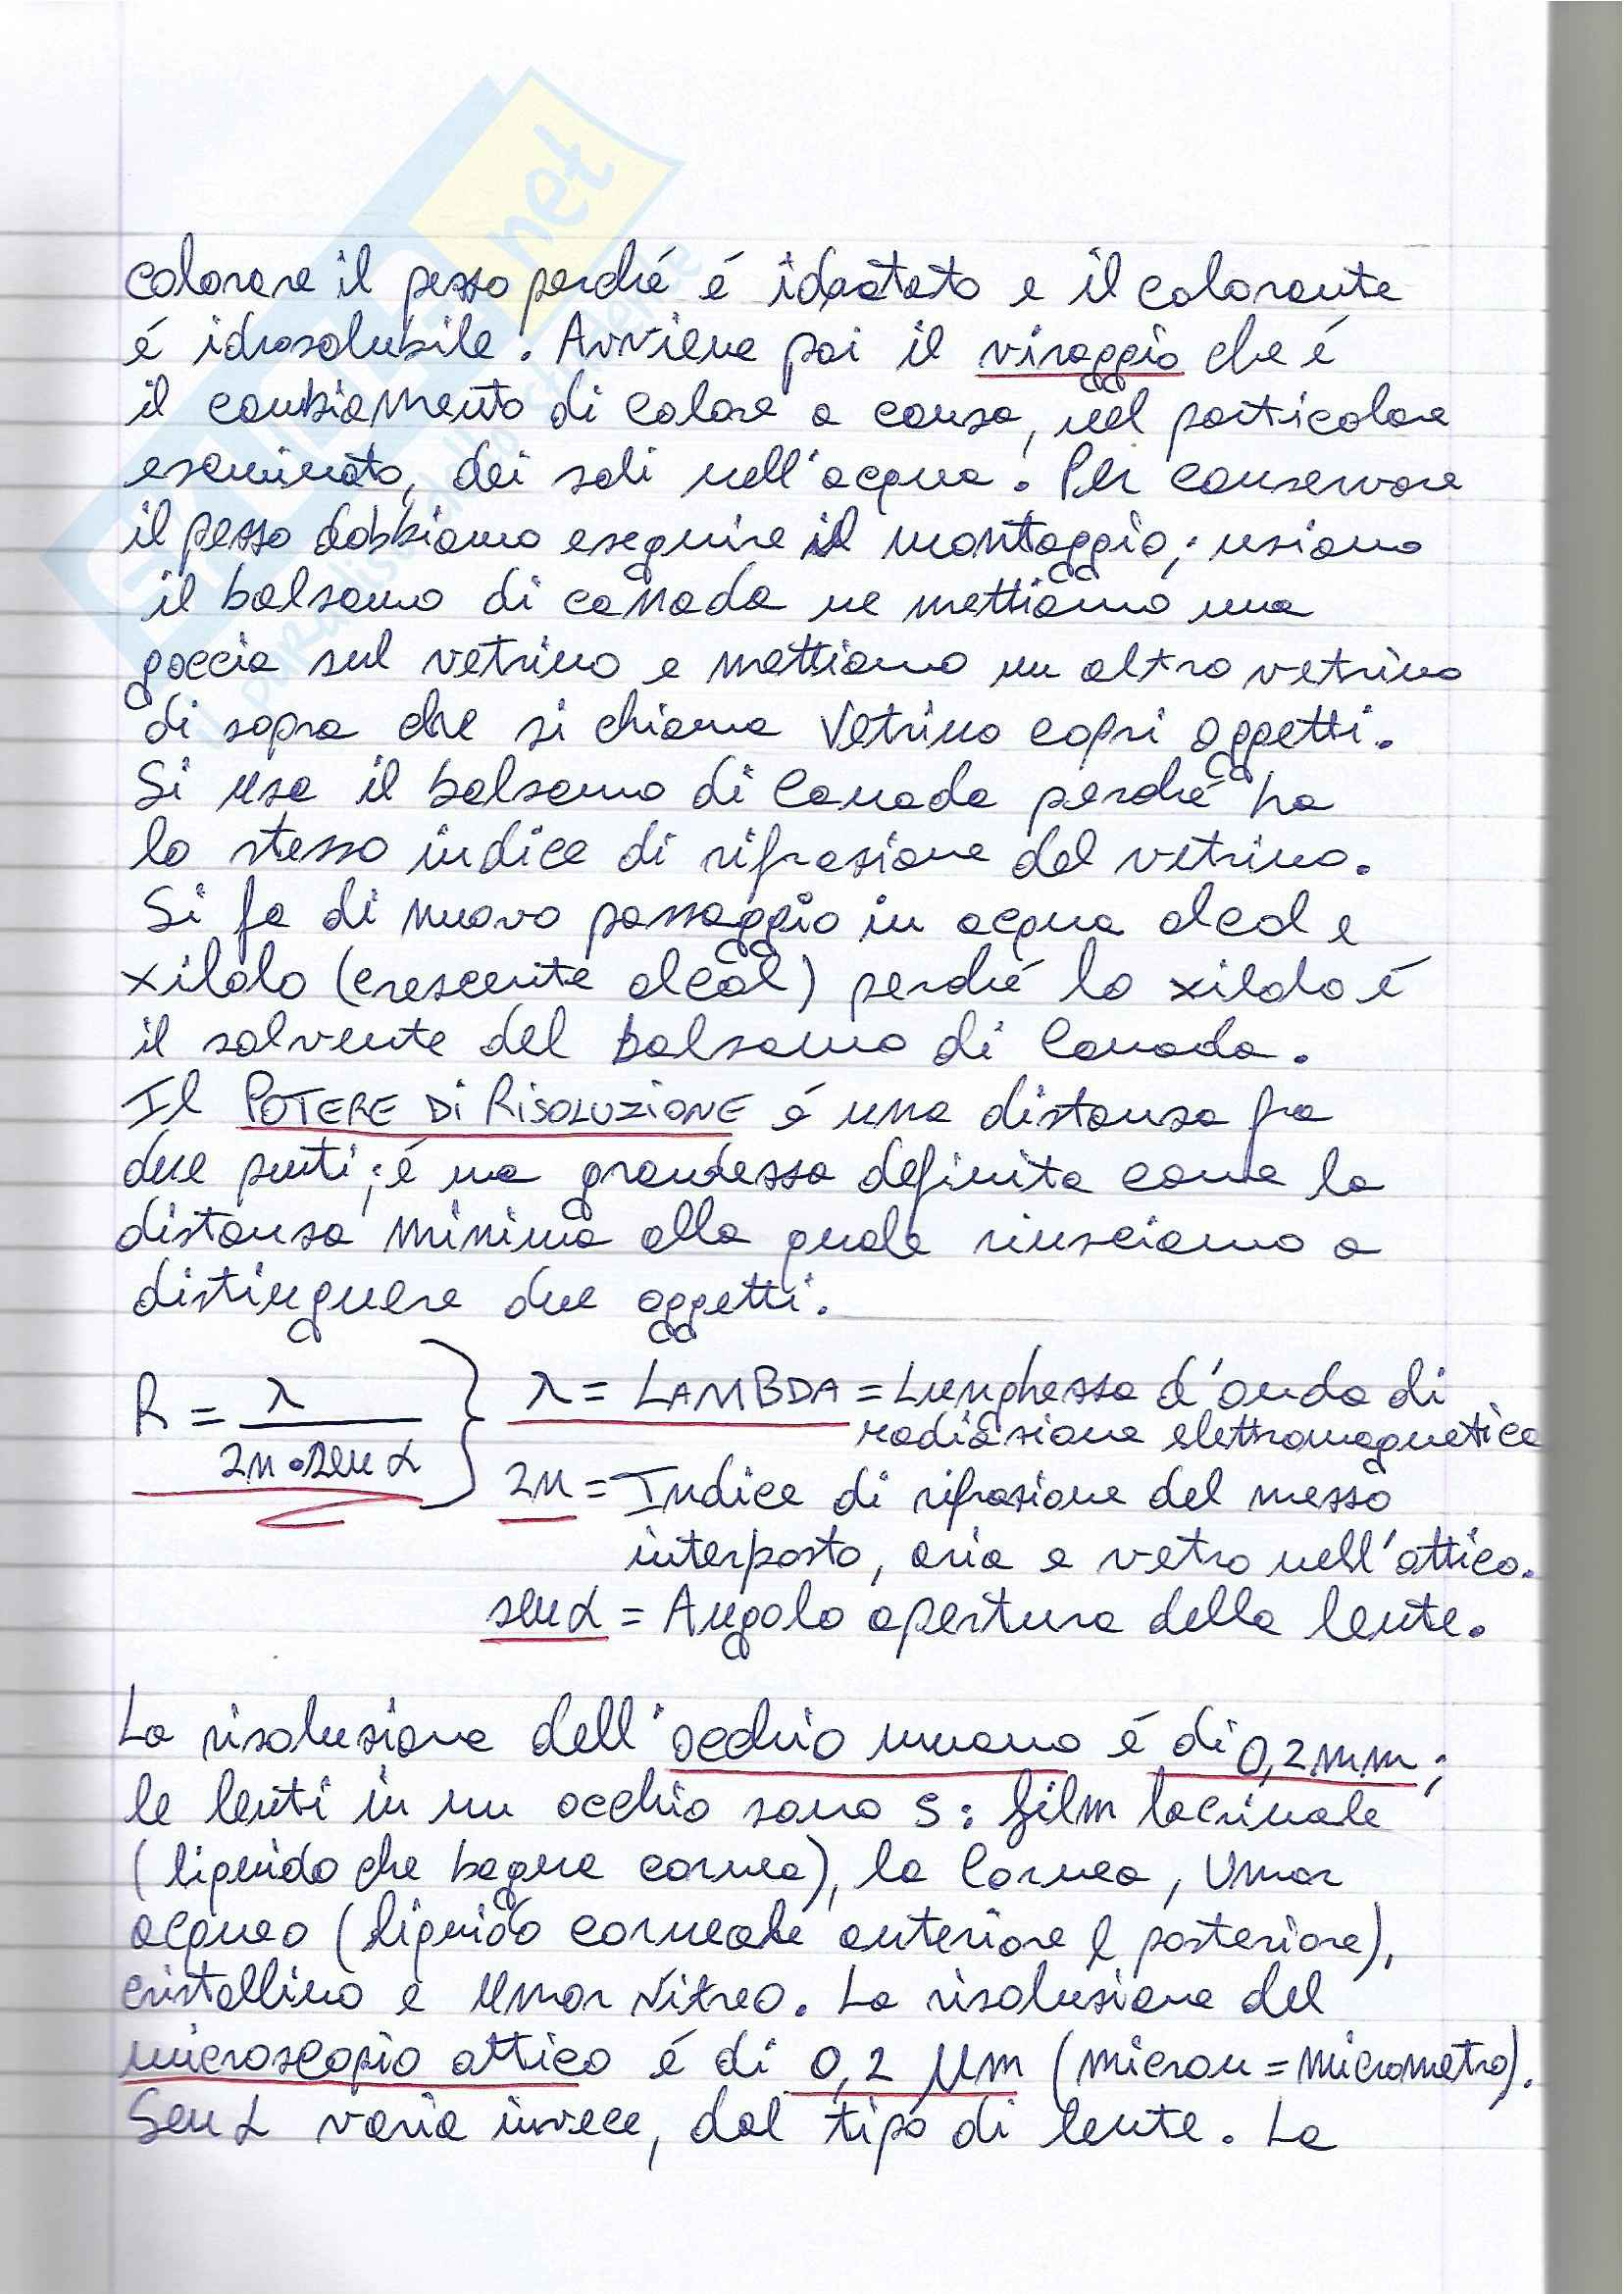 net
colorare il pezzo perché é idratato e il colorante
é idrosolubile. Avviene poi il viraggio che é
il cambiamento di colore a causa, nel particolare
esaminato, dei sali nell'acqua. Per conservare
il pezzo dobbiamo eseguire il montaggio; usiamo
il balsamo di canada ne mettiamo una
goccia sul vetrino e mettiamo un altro vetrino
di sopra che si chiama Vetrino copri oggetti.
Si usa il balsamo di Canada perché ha
lo stesso indice di rifrazione del vetrino.
Si fa di nuovo passaggio in acqua alcol e
xilolo (crescente alcol) perché lo xilolo é
il solvente del balsamo di Canada.
Il POTERE Di RiSOLUZIONE é una distanza fra
due punti; é una grandezza definita come la
distanza minima alla quale riusciamo a
distinguere due oggetti.
R = λ / 2n•sen α } λ = LAMBDA = Lunghezza d'onda di
radiazione elettromagnetica
2n = Indice di rifrazione del mezzo
interposto, aria e vetro nell'ottico.
sen α = Angolo apertura della lente.
La risoluzione dell'occhio umano é di 0,2 mm;
le lenti in un occhio sono 5: film lacrimale
(liquido che bagna cornea), la Cornea, Umor
acqueo (liquido corneale anteriore e posteriore),
cristallino e Umor Vitreo. La risoluzione del
microscopio ottico é di 0,2 µm (micron = micrometro).
Sen α varia invece, dal tipo di lente. La